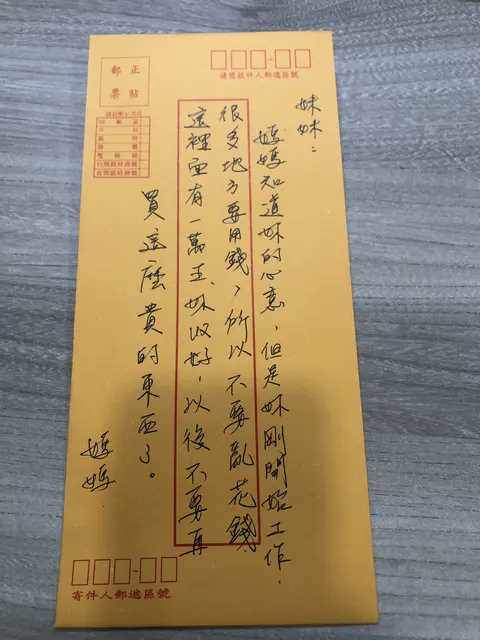 妹妹：
媽媽知道妹的心意，但是妹剛開始工作，
很多地方要用錢，所以不要亂花錢
這裡面有一萬五，妹收好，以後不要再
買這麼貴的東西了。
媽媽
正貼
郵票
請書收件人郵遞區號
寄件人郵遞區號